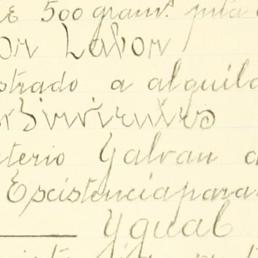 E 500 gram.s puta
on Labor
strado a alquila
Sirvientes
terio Galvan a
Escistencia para
Ygual